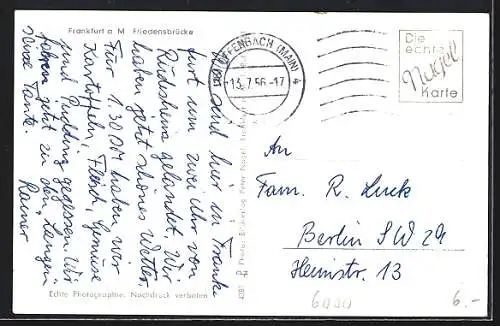 Frankfurt a M. Friedensbrücke
Wir sind hier in Frank-
furt um zwei Uhr von
Rüdesheim gelandet. Wir
haben jetzt schönes Wetter.
Für 1.30 DM haben wir
Kartoffeln, Fleisch, Gemüse
und Pudding gegessen. Wir
fahren jetzt zu den
Tante.
Rainer
Echte Photographie. Nachdruck verboten
OFFENBACH (MAIN)
13.7.56.-17
Die
echte
Nagel
Karte
An
Fam. R. Luck
Berlin SW 29
Heimstr. 13
6.-